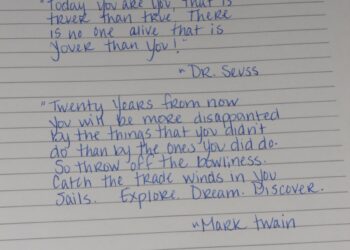 "Today you are you, that is
truer than true There
is no one alive that is
youer than you!"
~ Dr. Seuss
"Twenty years from now
you will be more disappointed
by the things that you didn't
do than by the ones you did do.
So throw off the bowlines.
Catch the trade winds in you
sails. Explore. Dream. Discover.
~Mark Twain